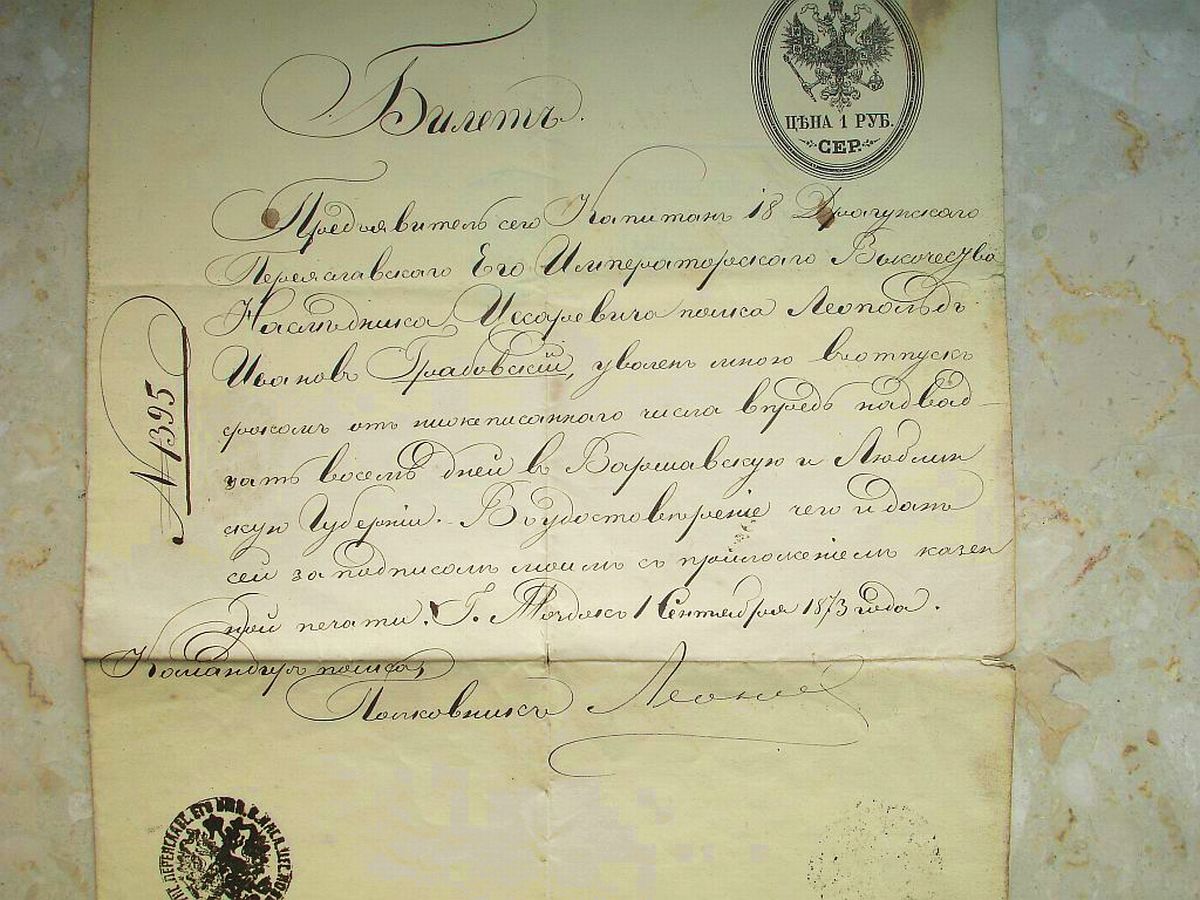 Билетъ.
ЦѢНА 1 РУБ.
СЕР.
Предъявитель сего Капитанъ 18 Драгунскаго
Переяславскаго Его Императорскаго Высочества
Наслѣдника Цесаревича полка Леопольдъ
Ивановъ Грабовскій, уволенъ мною въ отпускъ
срокомъ отъ нижеписаннаго числа впредь на двад-
цать восемь дней въ Варшавскую и Люблин
скую Губерніи. Въ удостовѣреніе чего и данъ
сей за подписомъ моимъ съ приложеніемъ казен
ной печати. Г. 1 Сентября 1873 года.
№ 1395
Командиръ полка,
Полковникъ